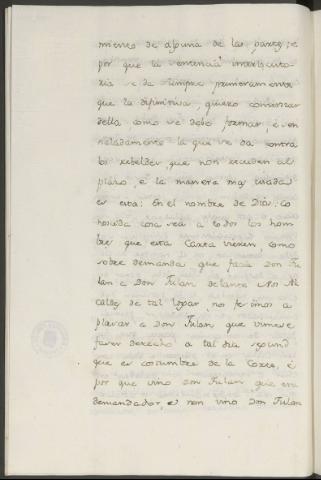 miento de alguna de las partes, e
por que la sentencia interlocuto-
ria se da siempre primeramente
que la difinitiva, quiero comenzar
della como se debe formar, e sen-
naladamente la que se da contra
los rebeldes, que non recuden al
plazo, e la manera mas usada
es esta: En el nombre de Dios: Co-
noscida cosa sea a todos los hom-
bres que esta Carta vieren, como
sobre demanda que facia Don Fu-
lan a Don Fulan delante Nos Al-
caldes de tal logar, nos fecimos a-
plazar a Don Fulan que viniese
facer derecho a tal dia segund
que es costumbre de la Corte, é
por que vino Don Fulan que era
demandador, e non vino Don Fulan